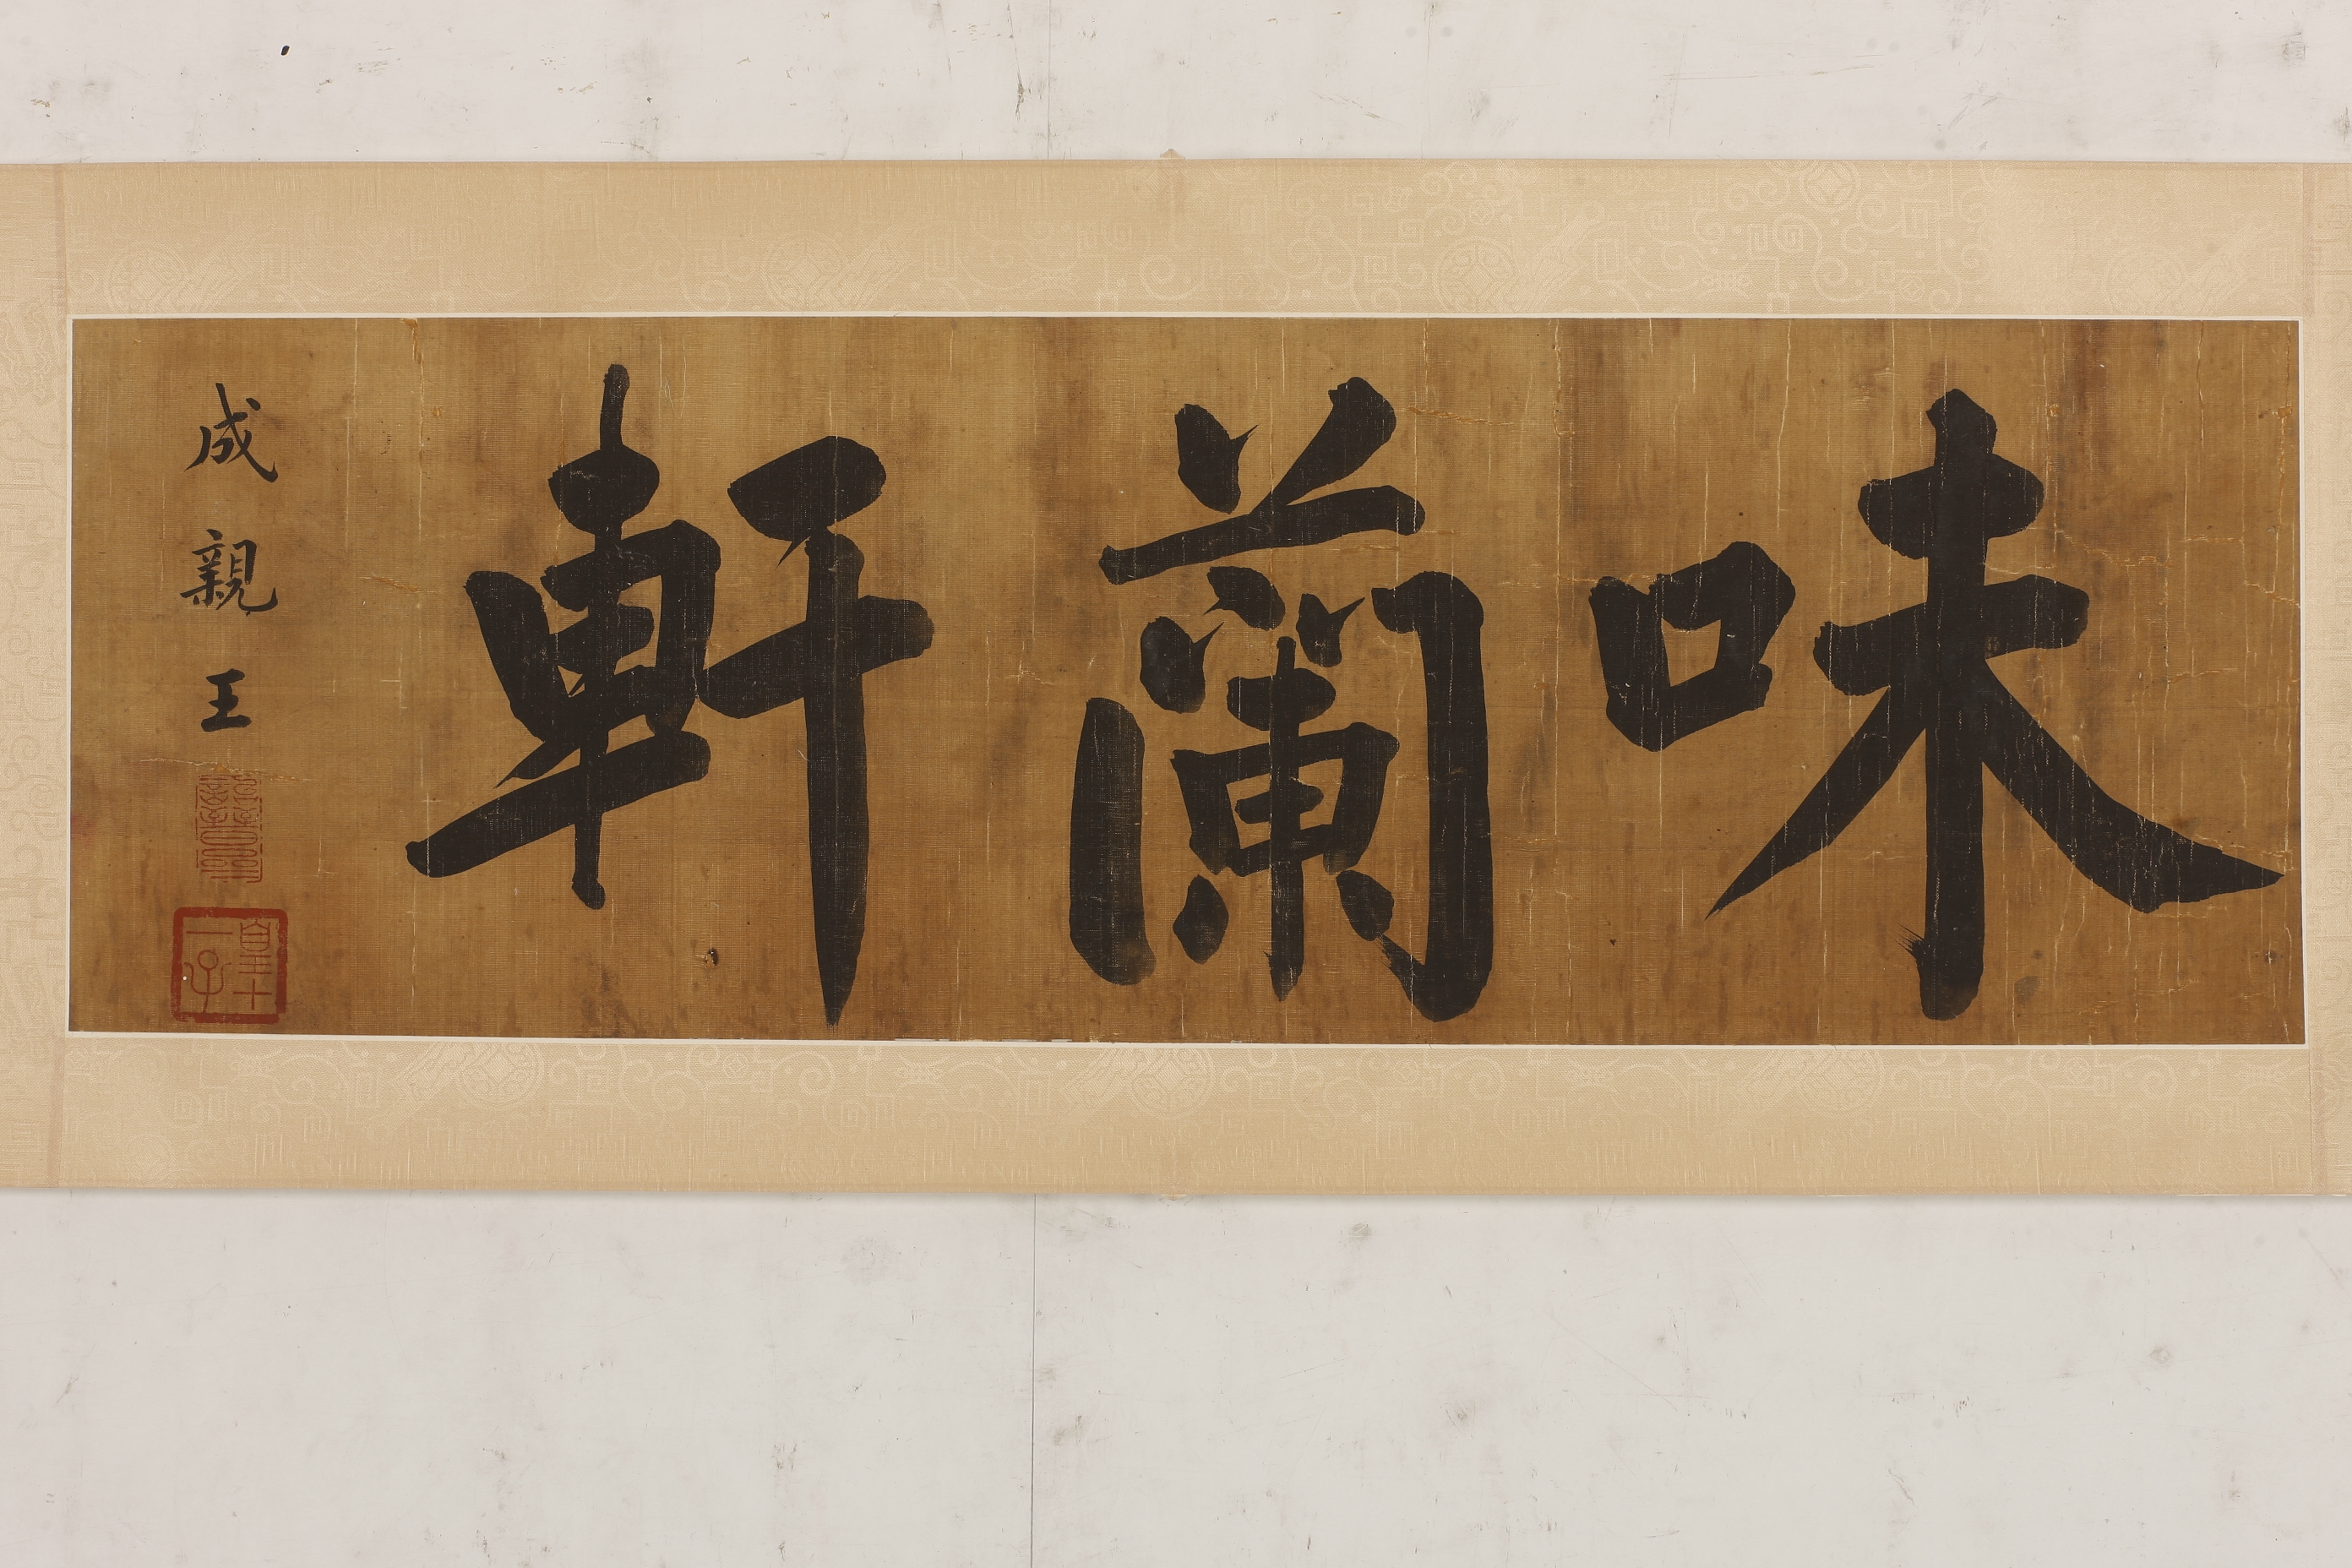 味蘭軒
成親王
皇十一子